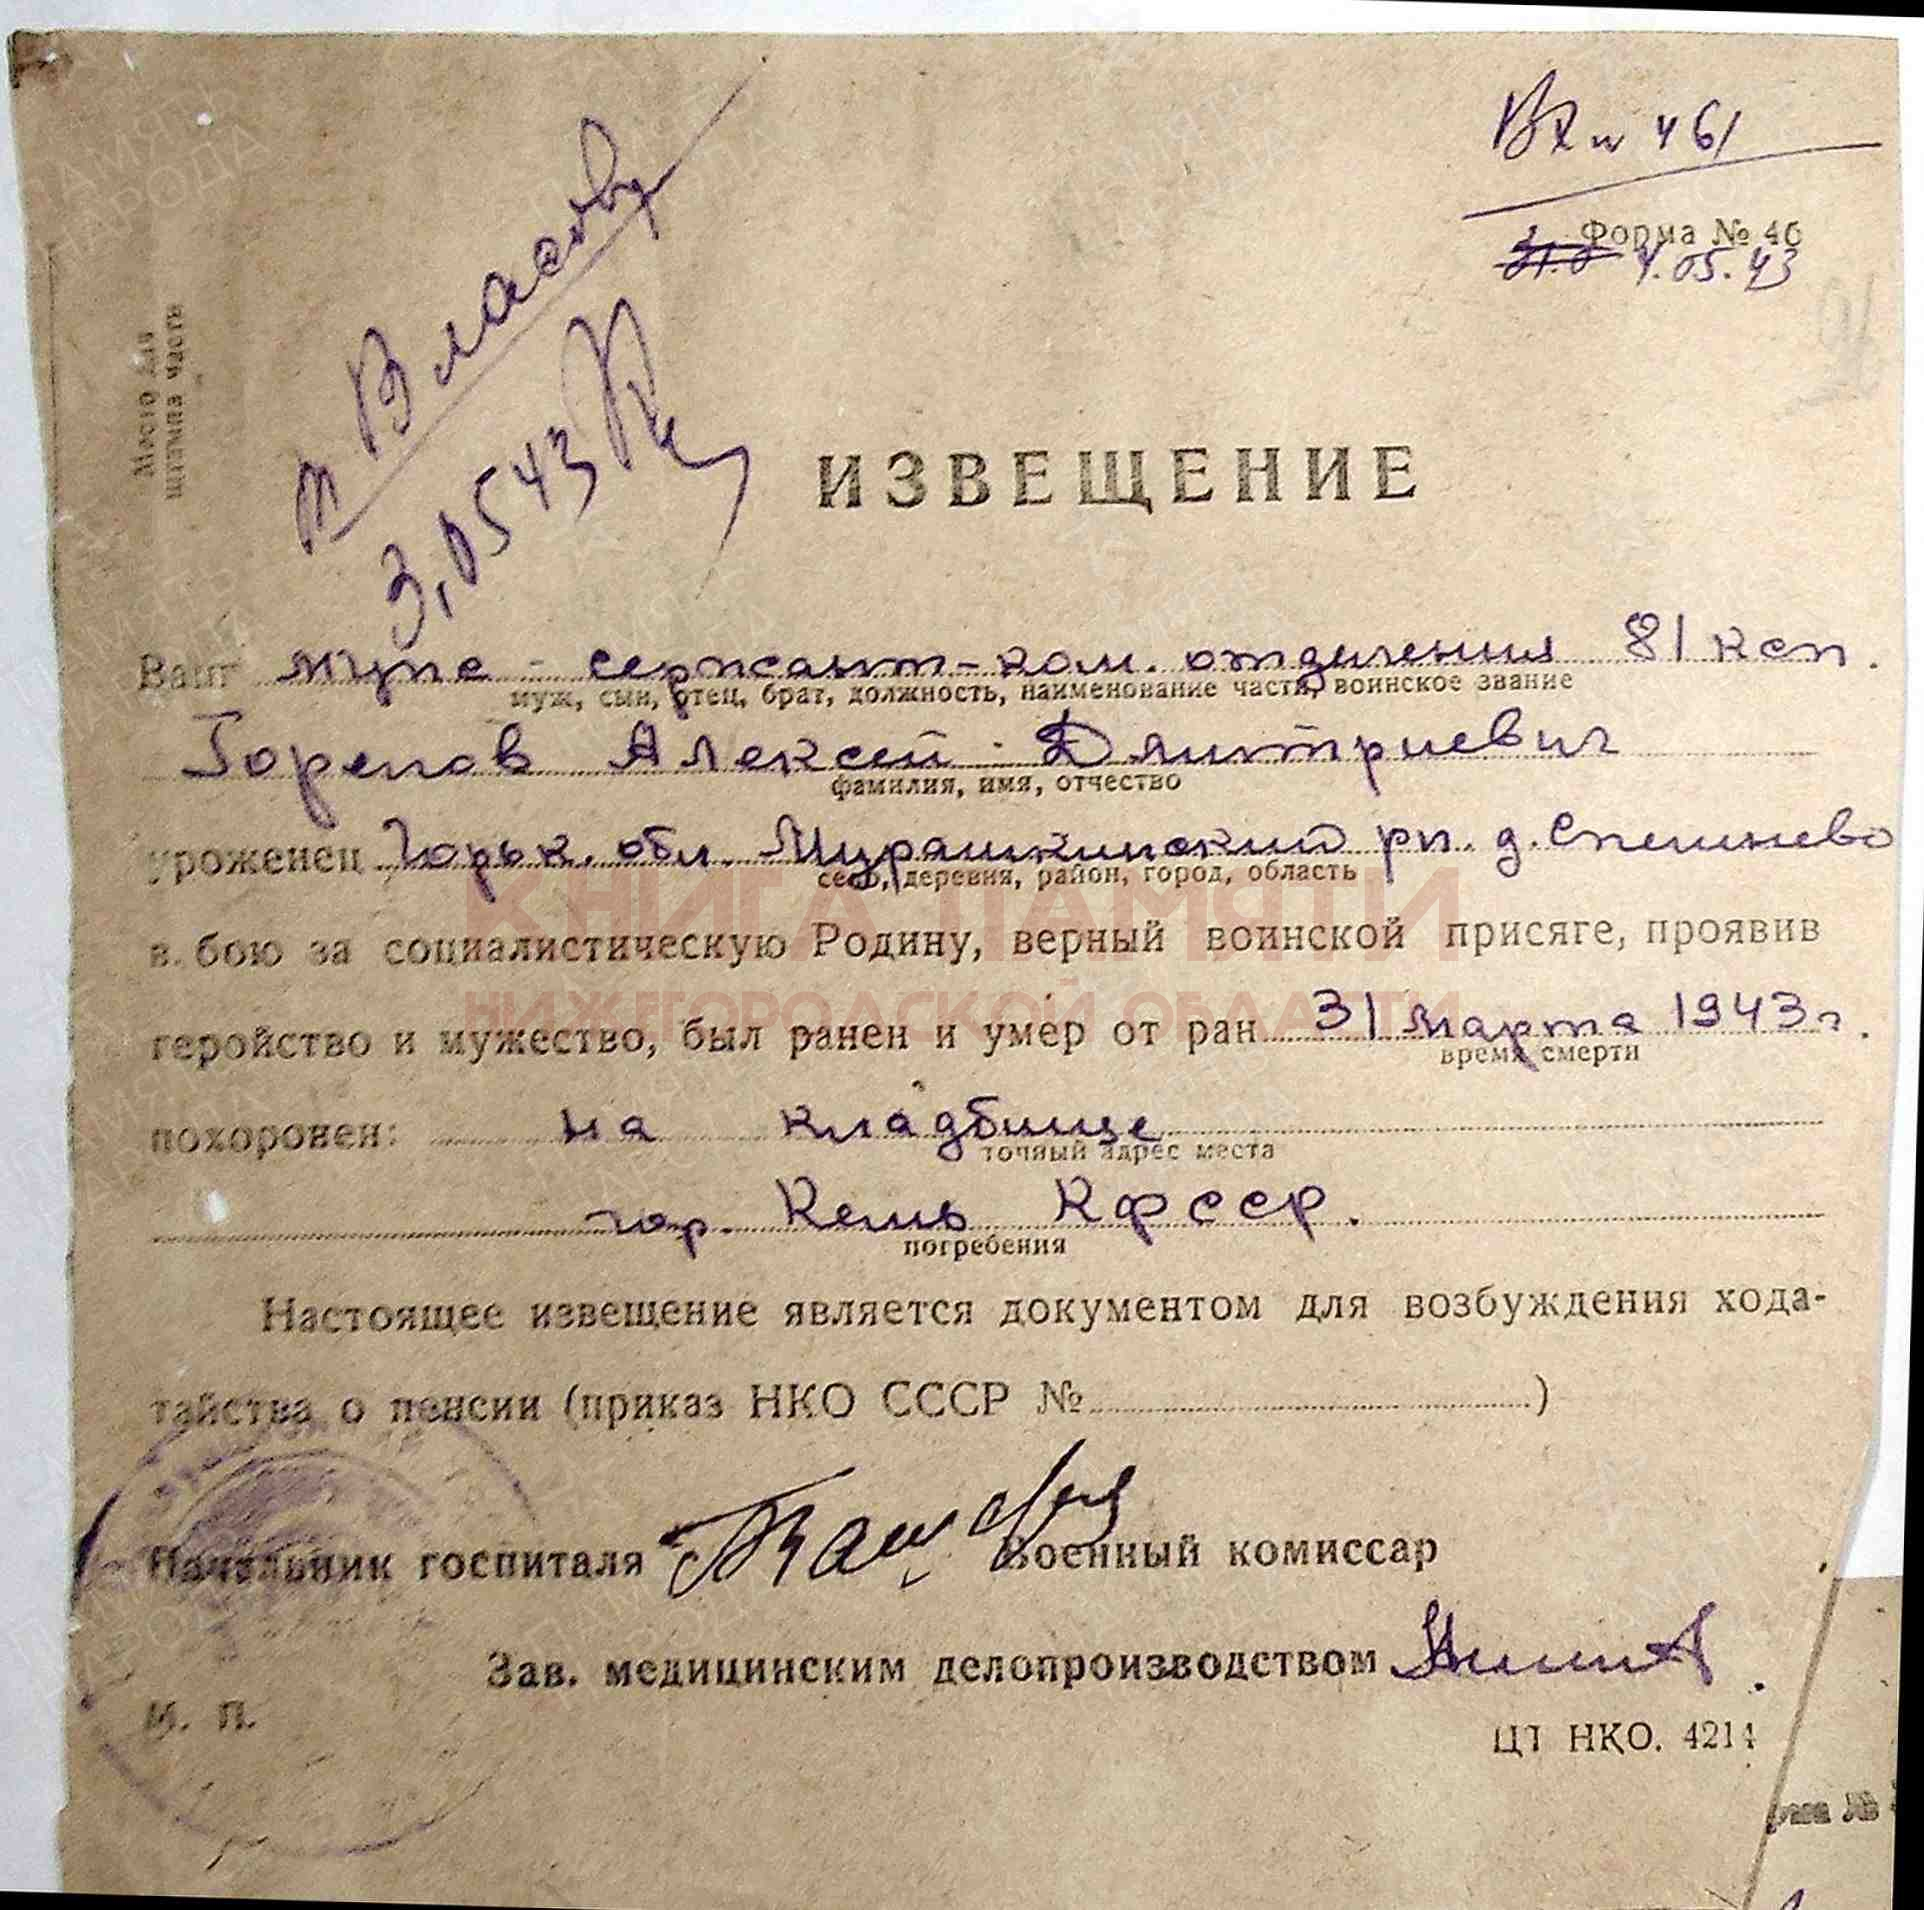 Вх № 461
Форма № 46
4.05.43
т Власову
3.05 43
Место для
штампа часть
ИЗВЕЩЕНИЕ
Ваш муж - сержант-ком. отделения 81 ксп.
муж, сын, отец, брат, должность, наименование части, воинское звание
Горелов Алексей Дмитриевич
фамилия, имя, отчество
уроженец Горьк. обл. Мурашкинский рн. д. Спешнево
село, деревня, район, город, область
в бою за социалистическую Родину, верный воинской присяге, проявив
геройство и мужество, был ранен и умер от ран 31 марта 1943 г.
время смерти
похоронен: на кладбище
точный адрес места
гор. Кемь КФССР.
погребения
Настоящее извещение является документом для возбуждения хода-
тайства о пенсии (приказ НКО СССР № )
Начальник госпиталя Военный комиссар
Зав. медицинским делопроизводством
М. П.
ЦТ НКО. 4214
КНИГА ПАМЯТИ
НИЖЕГОРОДСКОЙ ОБЛАСТИ
ПАМЯТЬ
НАРОДА